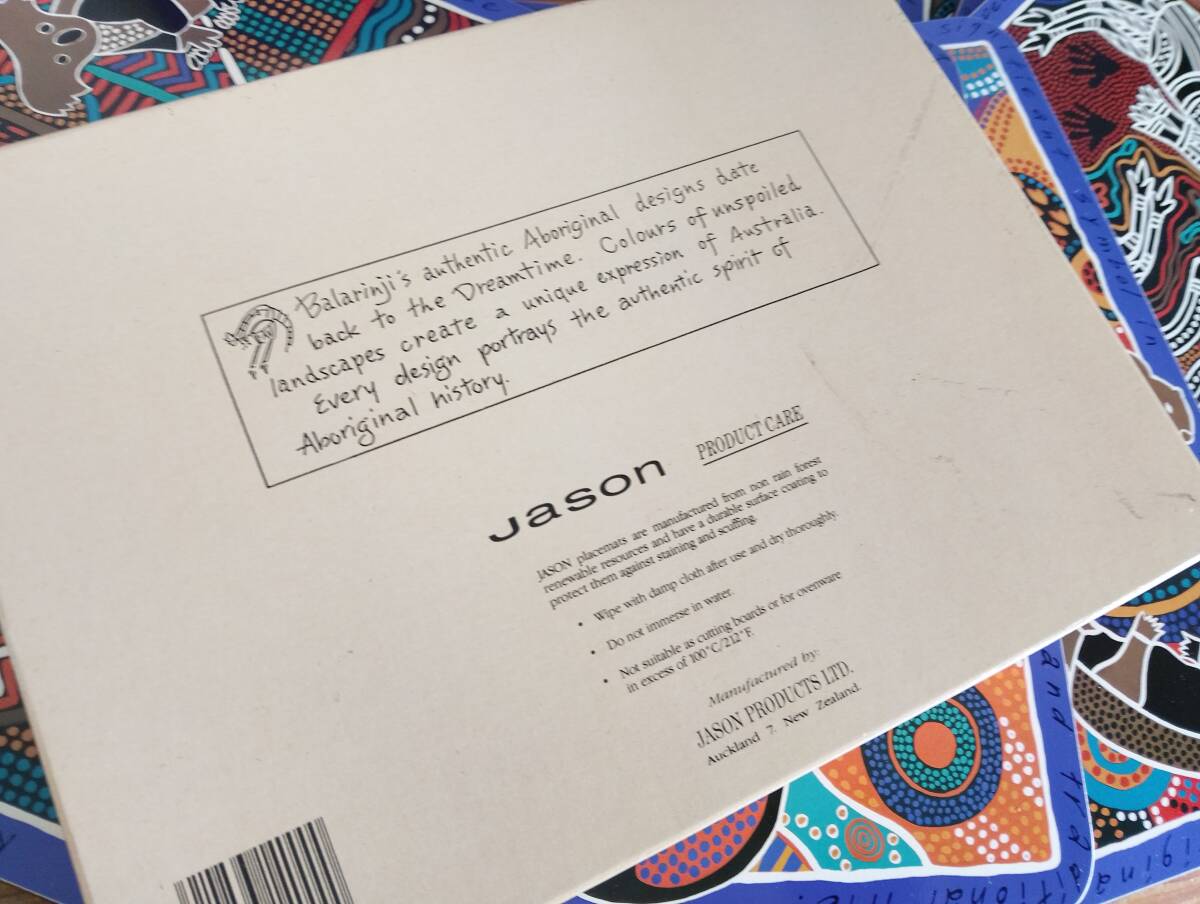 Balarinji's authentic Aboriginal designs date
back to the Dreamtime. Colours of unspoiled
landscapes create a unique expression of Australia.
Every design portrays the authentic spirit of
Aboriginal history.
Jason PRODUCT CARE
JASON placemats are manufactured from non rain forest
renewable resources and have a durable surface coating to
protect them against staining and scuffing.
• Wipe with damp cloth after use and dry thoroughly.
• Do not immerse in water.
• Not suitable as cutting boards or for ovenware
in excess of 100°C/212°F.
Manufactured by:
JASON PRODUCTS LTD.
Auckland 7. New Zealand.
significant symbol in
and tra
ditional life.
igina